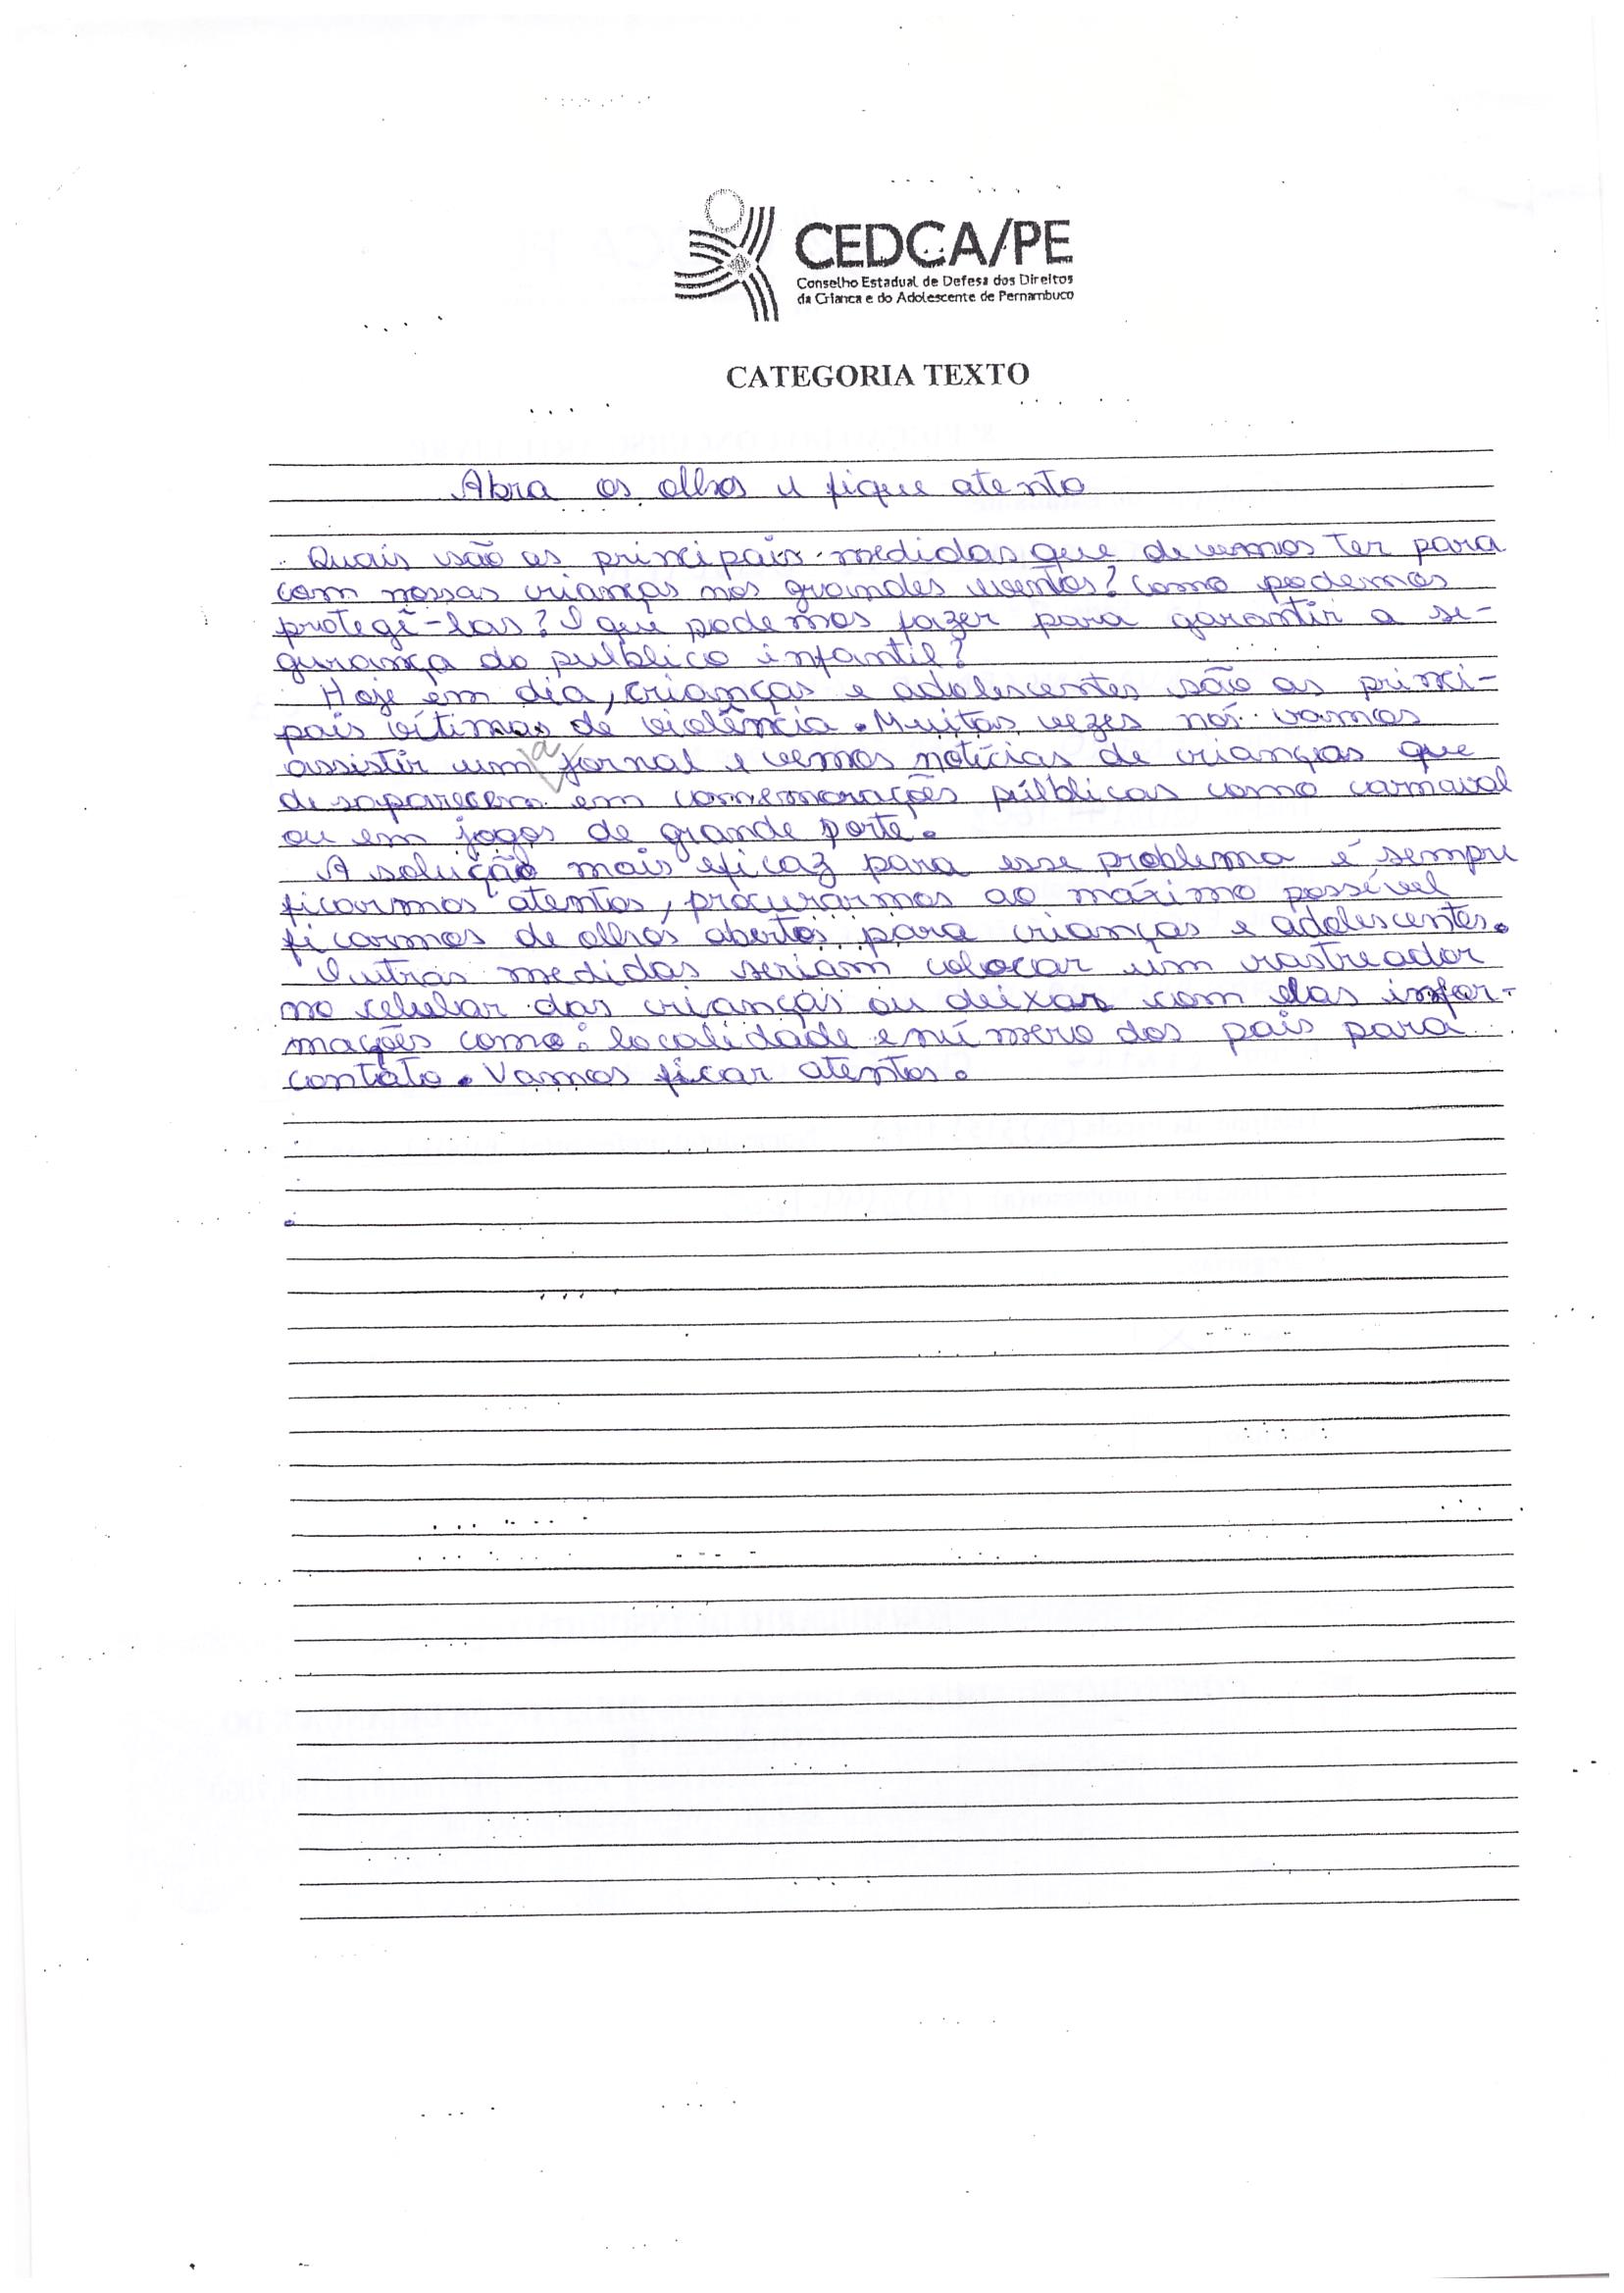 CEDCA/PE
Conselho Estadual de Defesa dos Direitos
da Crianca e do Adolescente de Pernambuco
CATEGORIA TEXTO
Abra os olhos e fique atento
Quais são as principais medidas que devemos ter para
com nossas crianças nos grandes eventos? Como podemos
protegê-las? O que podemos fazer para garantir a se-
gurança do público infantil?
Hoje em dia, crianças e adolescentes são as princi-
pais vítimas de violência. Muitas vezes nós vamos
assistir um a jornal e vemos notícias de crianças que
desaparecem em comemorações públicas como carnaval
ou em jogos de grande porte.
A solução mais eficaz para esse problema é sempre
ficarmos atentos, procurarmos ao máximo possível
ficarmos de olhos abertos para crianças e adolescentes.
Outras medidas seriam colocar um rastreador
no celular das crianças ou deixar com elas infor-
mações como: localidade e número dos pais para
contato. Vamos ficar atentos.